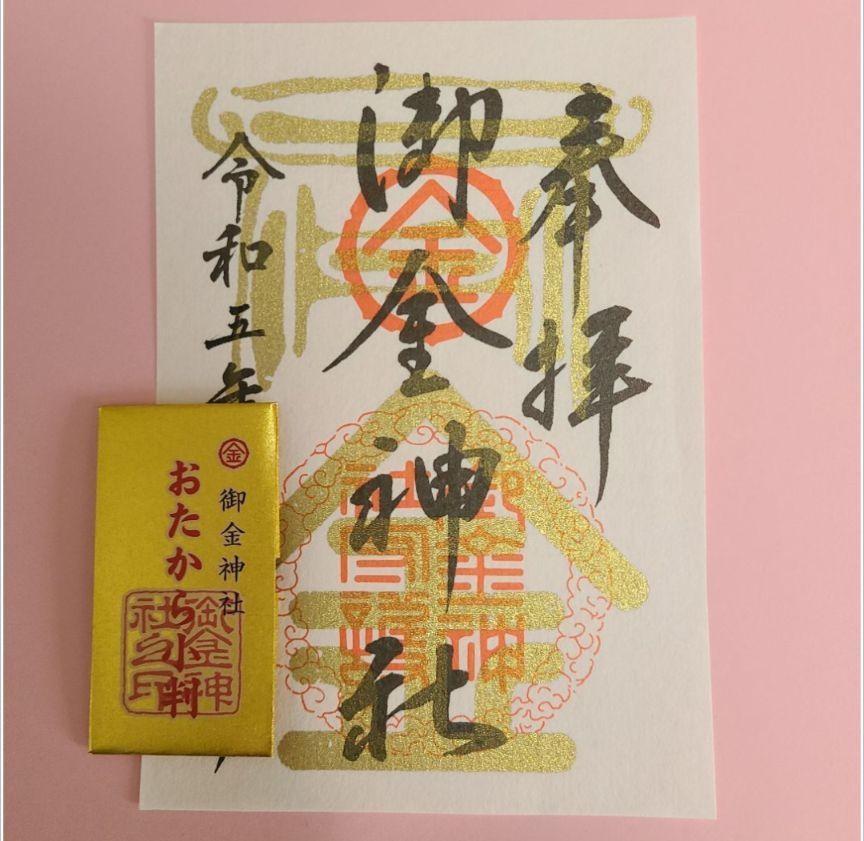 奉拝
御金神社
令和五年
金
御金神社
おたから小判
御金神社之印
金